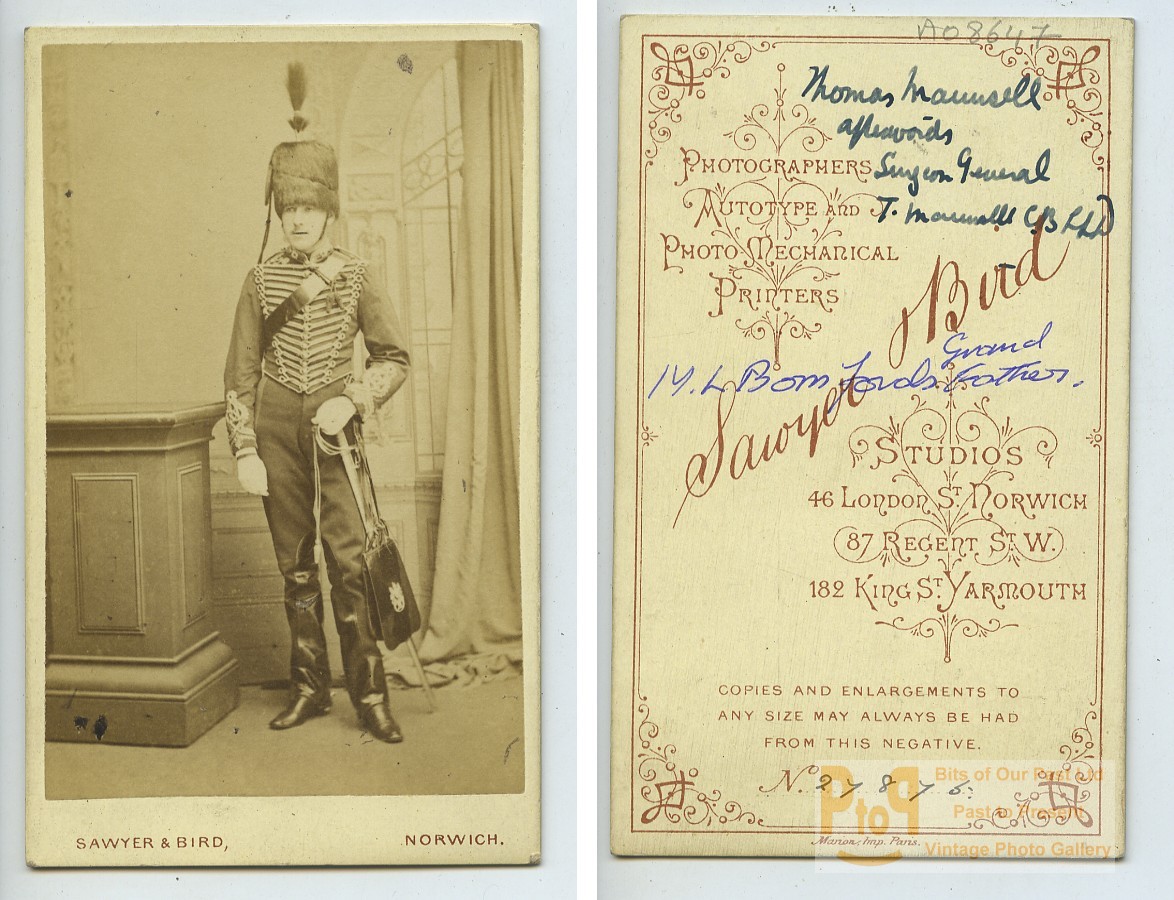 SAWYER & BIRD, NORWICH.
A08647
Thomas Maunsell
afterwords
Surgeon General
T. Maunsell CB LLD
PHOTOGRAPHERS
AUTOTYPE AND
PHOTO-MECHANICAL
PRINTERS
Sawyer & Bird
Grand
Father.
STUDIOS
46 LONDON ST. NORWICH
87 REGENT ST. W.
182 KING ST. YARMOUTH
COPIES AND ENLARGEMENTS TO
ANY SIZE MAY ALWAYS BE HAD
FROM THIS NEGATIVE.
No. 27876.
Marion, Imp. Paris.
PtoP
Bits of Our Past Ltd
Past to Present
Vintage Photo Gallery